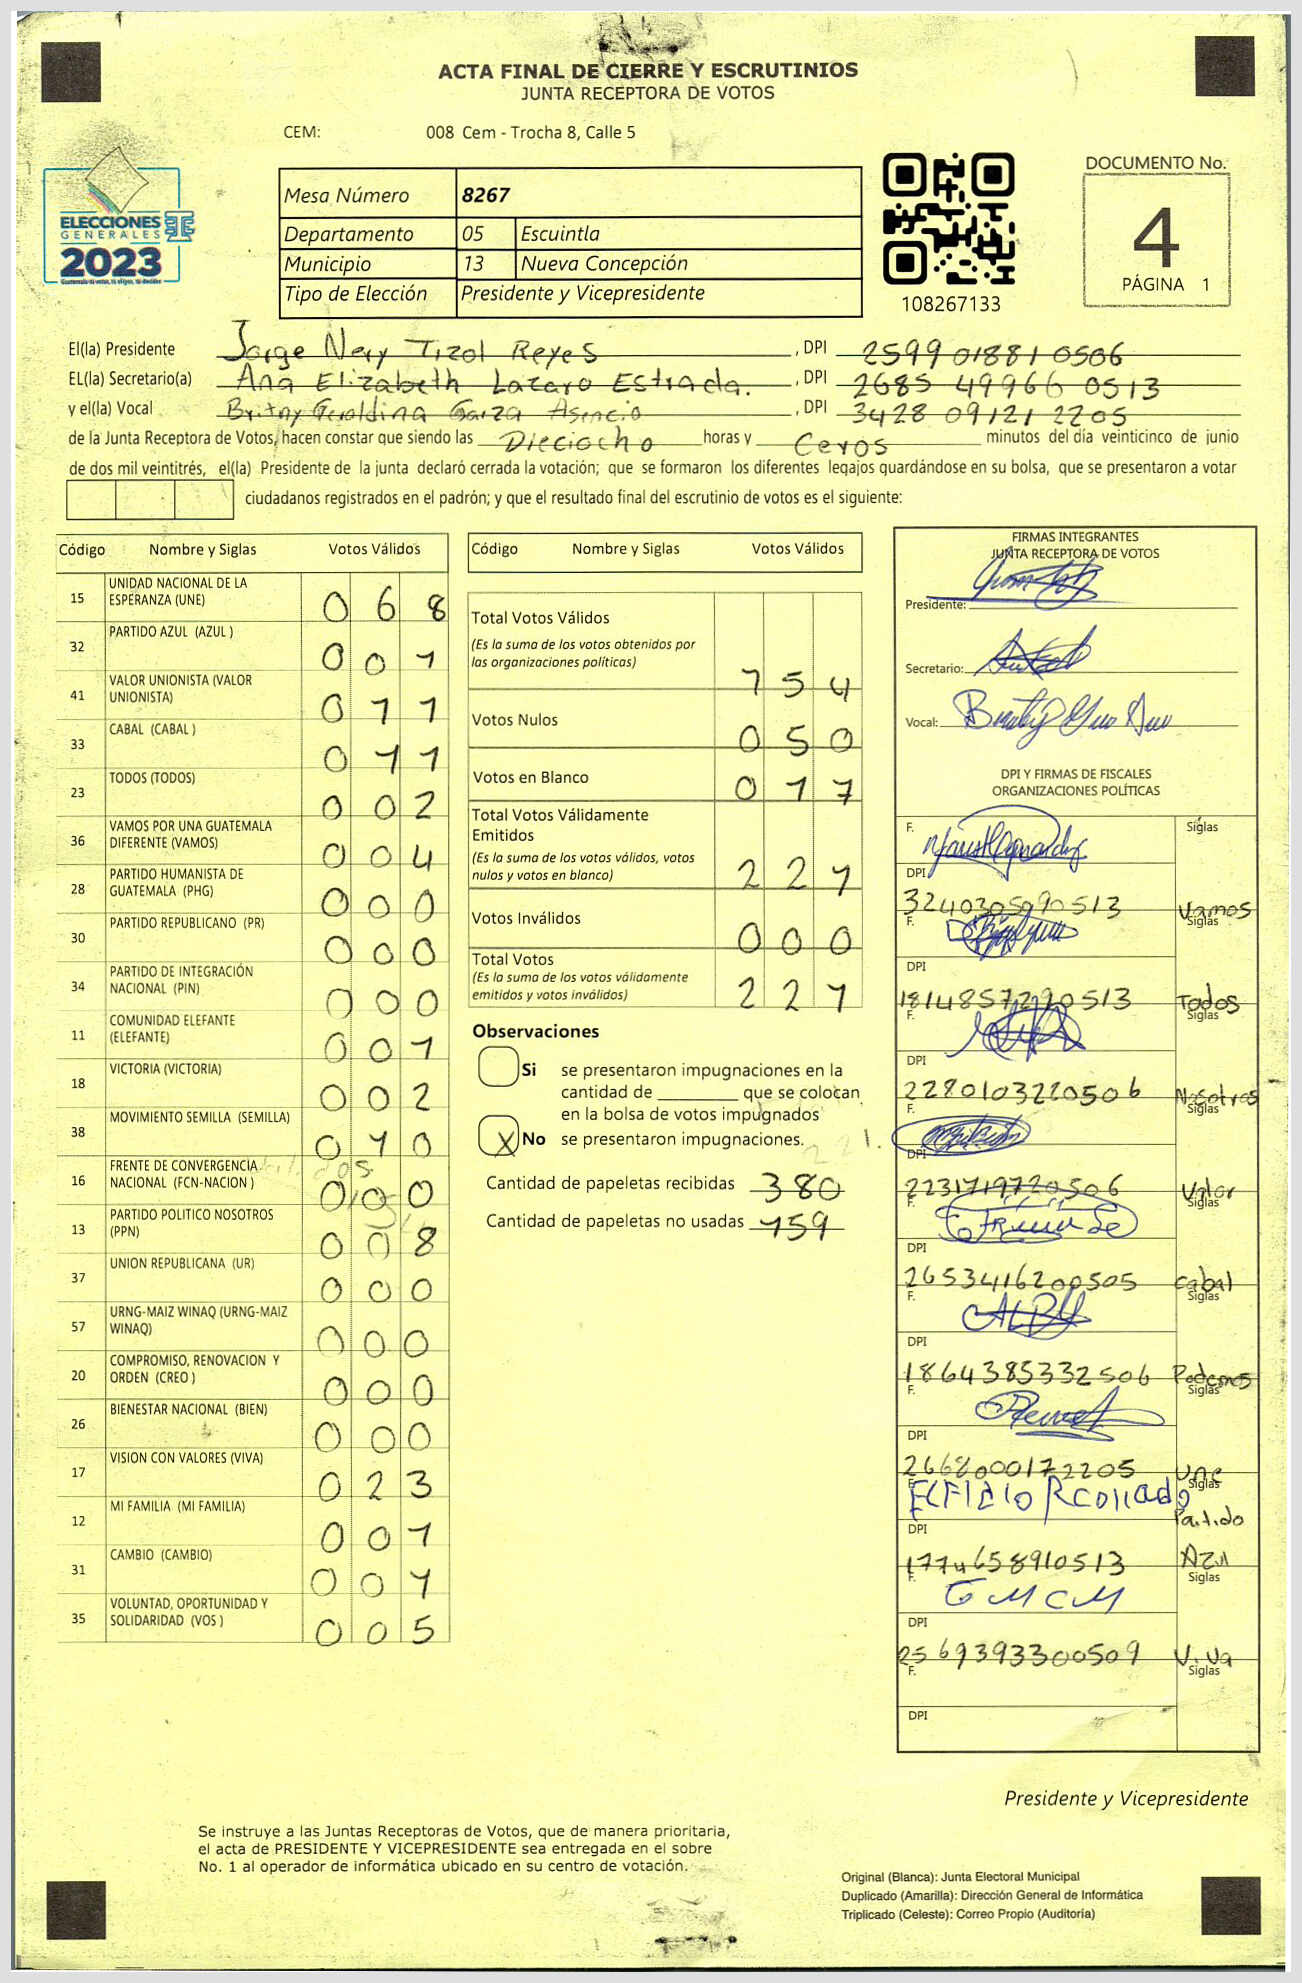 ACTA FINAL DE CIERRE Y ESCRUTINIOS
JUNTA RECEPTORA DE VOTOS
CEM: 008 Cem - Trocha 8, Calle 5
ELECCIONES
GENERALES
2023
Mesa Número 8267
Departamento 05 Escuintla
Municipio 13 Nueva Concepción
Tipo de Elección Presidente y Vicepresidente
108267133
DOCUMENTO No.
4
PÁGINA 1
El(la) Presidente Jorge Nery Tizol Reyes, DPI 2599 01881 0506
EL(la) Secretario(a) Ana Elizabeth Lazaro Estrada., DPI 2685 49966 0513
y el(la) Vocal Britny Geraldina Garza Asencio, DPI 3428 09121 2205
de la Junta Receptora de Votos, hacen constar que siendo las Dieciocho horas y Ceros minutos del día veinticinco de junio
de dos mil veintitrés, el(la) Presidente de la junta declaró cerrada la votación; que se formaron los diferentes legajos guardándose en su bolsa, que se presentaron a votar
ciudadanos registrados en el padrón; y que el resultado final del escrutinio de votos es el siguiente:
Código Nombre y Siglas Votos Válidos
15 UNIDAD NACIONAL DE LA ESPERANZA (UNE) 0 6 8
32 PARTIDO AZUL (AZUL ) 0 0 1
41 VALOR UNIONISTA (VALOR UNIONISTA) 0 1 1
33 CABAL (CABAL ) 0 1 1
23 TODOS (TODOS) 0 0 2
36 VAMOS POR UNA GUATEMALA DIFERENTE (VAMOS) 0 0 4
28 PARTIDO HUMANISTA DE GUATEMALA (PHG) 0 0 0
30 PARTIDO REPUBLICANO (PR) 0 0 0
34 PARTIDO DE INTEGRACIÓN NACIONAL (PIN) 0 0 0
11 COMUNIDAD ELEFANTE (ELEFANTE) 0 0 1
18 VICTORIA (VICTORIA) 0 0 2
38 MOVIMIENTO SEMILLA (SEMILLA) 0 1 0
16 FRENTE DE CONVERGENCIA NACIONAL (FCN-NACION ) 0 0 0
13 PARTIDO POLITICO NOSOTROS (PPN) 0 0 8
37 UNION REPUBLICANA (UR) 0 0 0
57 URNG-MAIZ WINAQ (URNG-MAIZ WINAQ) 0 0 0
20 COMPROMISO, RENOVACION Y ORDEN (CREO ) 0 0 0
26 BIENESTAR NACIONAL (BIEN) 0 0 0
17 VISION CON VALORES (VIVA) 0 2 3
12 MI FAMILIA (MI FAMILIA) 0 0 1
31 CAMBIO (CAMBIO) 0 0 1
35 VOLUNTAD, OPORTUNIDAD Y SOLIDARIDAD (VOS ) 0 0 5
Código Nombre y Siglas Votos Válidos
Total Votos Válidos
(Es la suma de los votos obtenidos por
las organizaciones políticas) 1 5 4
Votos Nulos 0 5 0
Votos en Blanco 0 1 7
Total Votos Válidamente
Emitidos
(Es la suma de los votos válidos, votos
nulos y votos en blanco) 2 2 1
Votos Inválidos 0 0 0
Total Votos
(Es la suma de los votos válidamente
emitidos y votos inválidos) 2 2 1
Observaciones
Si se presentaron impugnaciones en la
cantidad de ________ que se colocan
en la bolsa de votos impugnados
X No se presentaron impugnaciones.
221.
Cantidad de papeletas recibidas 380
Cantidad de papeletas no usadas 159
FIRMAS INTEGRANTES
JUNTA RECEPTORA DE VOTOS
Presidente:
Secretario:
Vocal:
DPI Y FIRMAS DE FISCALES
ORGANIZACIONES POLÍTICAS
F. Siglas
DPI
3240305090513 Vamos
F. Siglas
DPI
1814857290513 Todos
F. Siglas
DPI
2280103220506 Nosotros
F. Siglas
DPI
2231719720506 Valor
F. Siglas
DPI
2653416200505 cabal
F. Siglas
DPI
1864385332506 Podemos
F. Siglas
DPI
2668000172205 une
F. Siglas
Partido
DPI
1774658910513 Azul
F. Siglas
DPI
2569393300509 Viva
F. Siglas
DPI
Presidente y Vicepresidente
Se instruye a las Juntas Receptoras de Votos, que de manera prioritaria,
el acta de PRESIDENTE Y VICEPRESIDENTE sea entregada en el sobre
No. 1 al operador de informática ubicado en su centro de votación.
Original (Blanca): Junta Electoral Municipal
Duplicado (Amarilla): Dirección General de Informática
Triplicado (Celeste): Correo Propio (Auditoría)